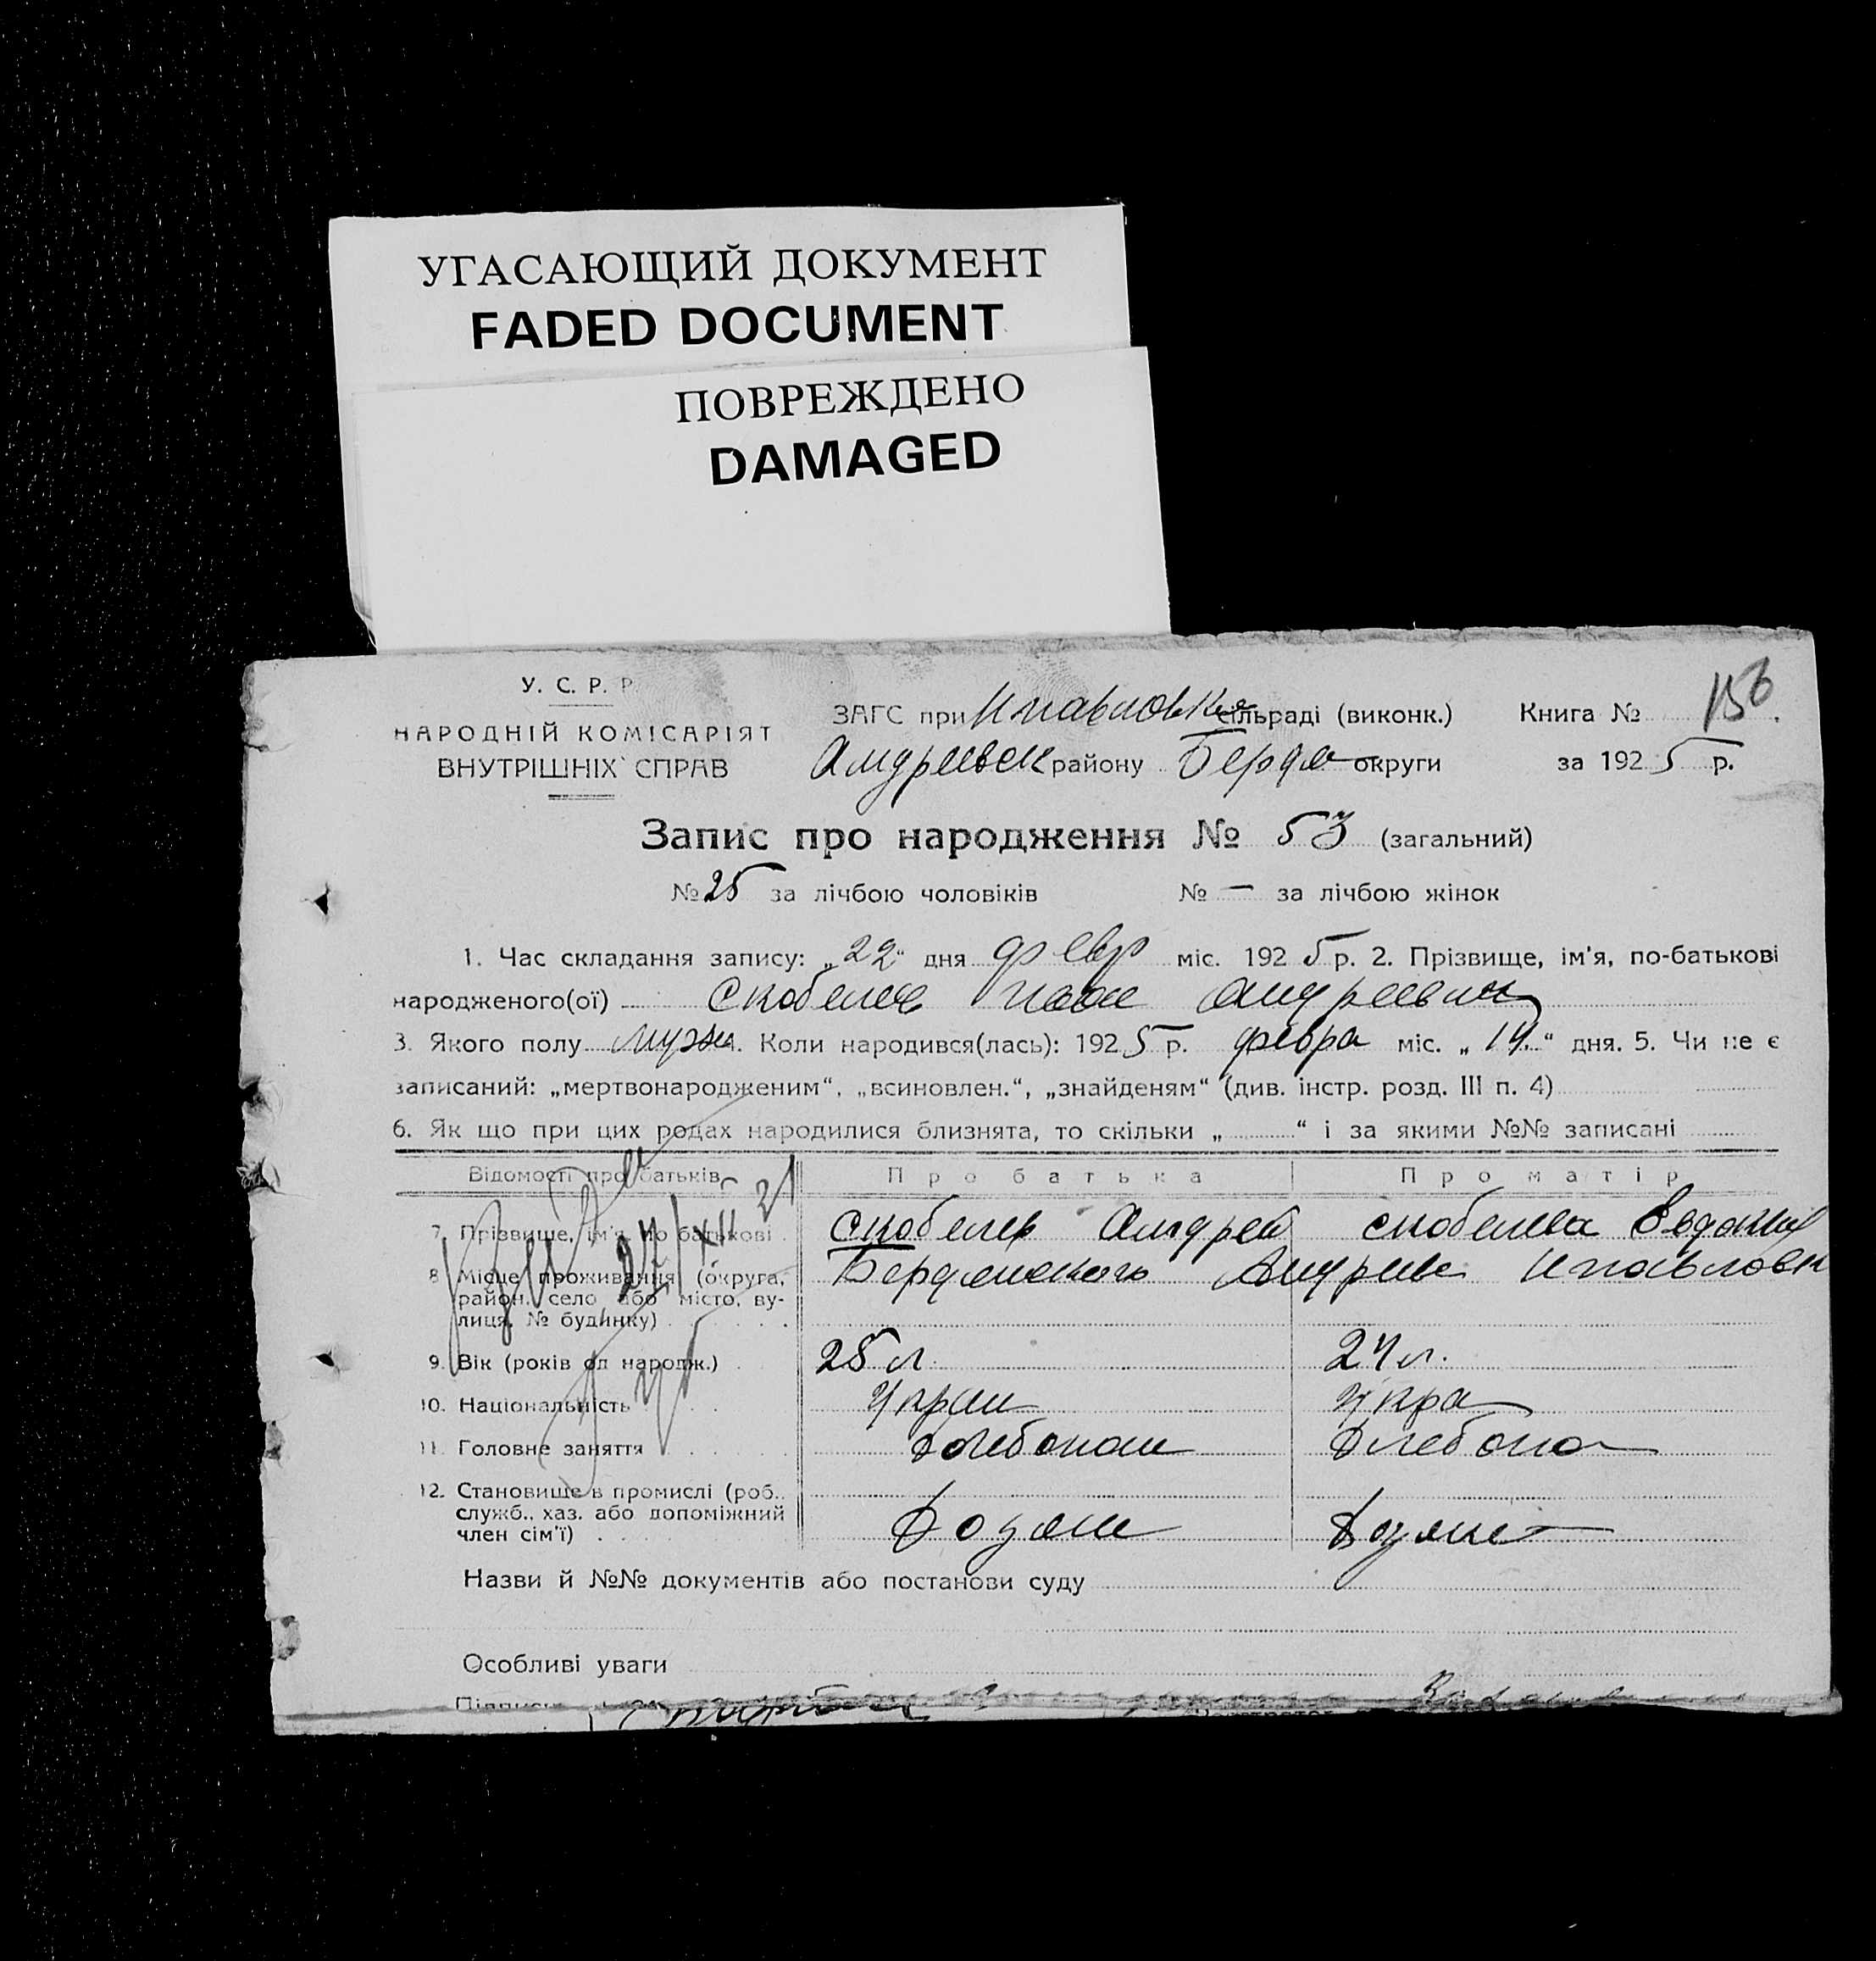 УГАСАЮЩИЙ ДОКУМЕНТ
FADED DOCUMENT
ПОВРЕЖДЕНО
DAMAGED
У. С. Р. Р.
НАРОДНІЙ КОМІСАРІЯТ
ВНУТРІШНІХ СПРАВ
ЗАГС при Н павловка сільраді (виконк.) Книга № 156
Андреевск району Бердя округи за 1925 р.
Запис про народження № 53 (загальний)
№ 25 за лічбою чоловіків № — за лічбою жінок
1. Час складання запису: „22“ дня февр міс. 1925 р. 2. Прізвище, ім'я, по-батькові
народженого(ої) Скобелев Андреевич
3. Якого полу муж 4. Коли народився(лась): 1925 р. февра міс. „14“ дня. 5. Чи не є
записаний: „мертвонародженим“, „всиновлен.“, „знайденям“ (див. інстр. розд. III п. 4)
6. Як що при цих родах народилися близнята, то скільки „ “ і за якими №№ записані
Відомості про батьків Про батька Про матір
7. Прізвище, ім'я, по батькові Скобелев Андрей Скобелева Евдокия
8. Місце проживання (округа, Бердянского Андреев Н павловк
район, село, або місто, ву-
лиця, № будинку)
9. Вік (років од народж.) 25 л. 24 л.
10. Національність Украи Укра
11. Головне заняття хлебопаш хлебопа
12. Становище в промислі (роб.,
служб., хаз. або допоміжний
член сім'ї) Хозяин Хозяи
Назви й №№ документів або постанови суду
Особливі уваги